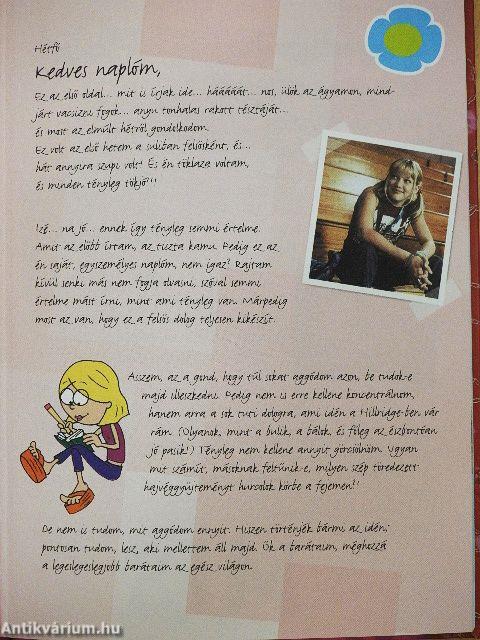 Hétfő
Kedves naplóm,
Ez az első oldal... mit is írjak ide... hááááát... nos, ülök az ágyamon, mind-
járt vacsizni fogok... anyu tonhalas rakott tésztáját...
és most az elmúlt hétről gondolkodom.
Ez volt az első hetem a suliban felsősként, és...
hát annyira szupi volt! És én töklaza voltam,
és minden tényleg tökjó!!!
Izé... na jó... ennek így tényleg semmi értelme.
Amit az előbb írtam, az tiszta kamu. Pedig ez az
én saját, egyszemélyes naplóm, nem igaz? Rajtam
kívül senki más nem fogja olvasni, szóval semmi
értelme mást írni, mint ami tényleg van. Márpedig
most az van, hogy ez a felsős dolog teljesen kikészít.
Asszem, az a gond, hogy túl sokat aggódom azon, be tudok-e
majd illeszkedni. Pedig nem is erre kellene koncentrálnom,
hanem arra a sok tuti dologra, ami idén a Hillridge-ben vár
rám. (Olyanok, mint a bulik, a bálok, és főleg az észbontóan
jó pasik!) Tényleg nem kellene annyit görcsölnöm. Ugyan
mit számít, másoknak feltűnik-e, milyen szép töredezett
hajvéggyűjteményt hurcolok körbe a fejemen?!
De nem is tudom, mit aggódom ennyit. Hiszen történjék bármi az idén,
pontosan tudom, lesz, aki mellettem áll majd. Ők a barátaim, méghozzá
a legeslegeslegjobb barátaim az egész világon.
Antikvárium.hu